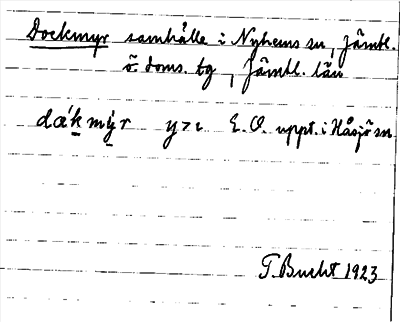 Dockmyr samhälle i Nyhems sn, Jämtl.
ö. doms. tg, Jämtl. län
y > i E. O. uppt. i Håsjö sn
T. Bucht 1923